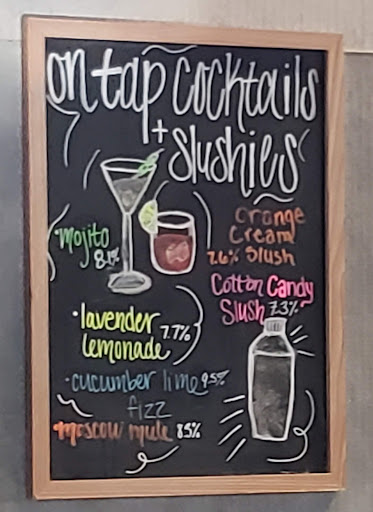 on tap cocktails
+ slushies
mojito
8.1%
orange
cream
7.6% slush
Cotton Candy
Slush 7.3%
•lavender
lemonade 7.7%
•cucumber lime 9.5%
fizz
moscow mule 8.5%